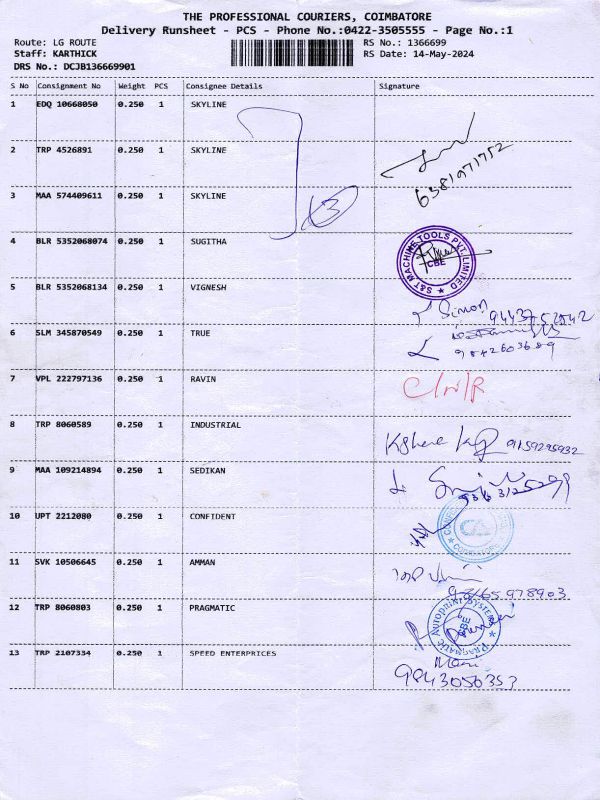 THE PROFESSIONAL COURIERS, COIMBATORE
Delivery Runsheet - PCS - Phone No.:0422-3505555 - Page No.:1
Route: LG ROUTE RS No.: 1366699
Staff: KARTHICK RS Date: 14-May-2024
DRS No.: DCJB136669901
S No Consignment No Weight PCS Consignee Details Signature
1 EDQ 10668050 0.250 1 SKYLINE
2 TRP 4526891 0.250 1 SKYLINE
6381971752
3 MAA 574409611 0.250 1 SKYLINE
3
4 BLR 5352068074 0.250 1 SUGITHA
S&T MACHINE TOOLS PVT. LIMITED
CBE
5 BLR 5352068134 0.250 1 VIGNESH
Simon
6 SLM 345870549 0.250 1 TRUE
9842603689
7 VPL 222797136 0.250 1 RAVIN
8 TRP 8060589 0.250 1 INDUSTRIAL
9159295932
9 MAA 109214894 0.250 1 SEDIKAN
10 UPT 2212080 0.250 1 CONFIDENT
11 SVK 10506645 0.250 1 AMMAN
12 TRP 8060803 0.250 1 PRAGMATIC
PRAGMATIC AUTOPRINT SYSTEMS
CBE
13 TRP 2107334 0.250 1 SPEED ENTERPRICES
Mani
9843050353